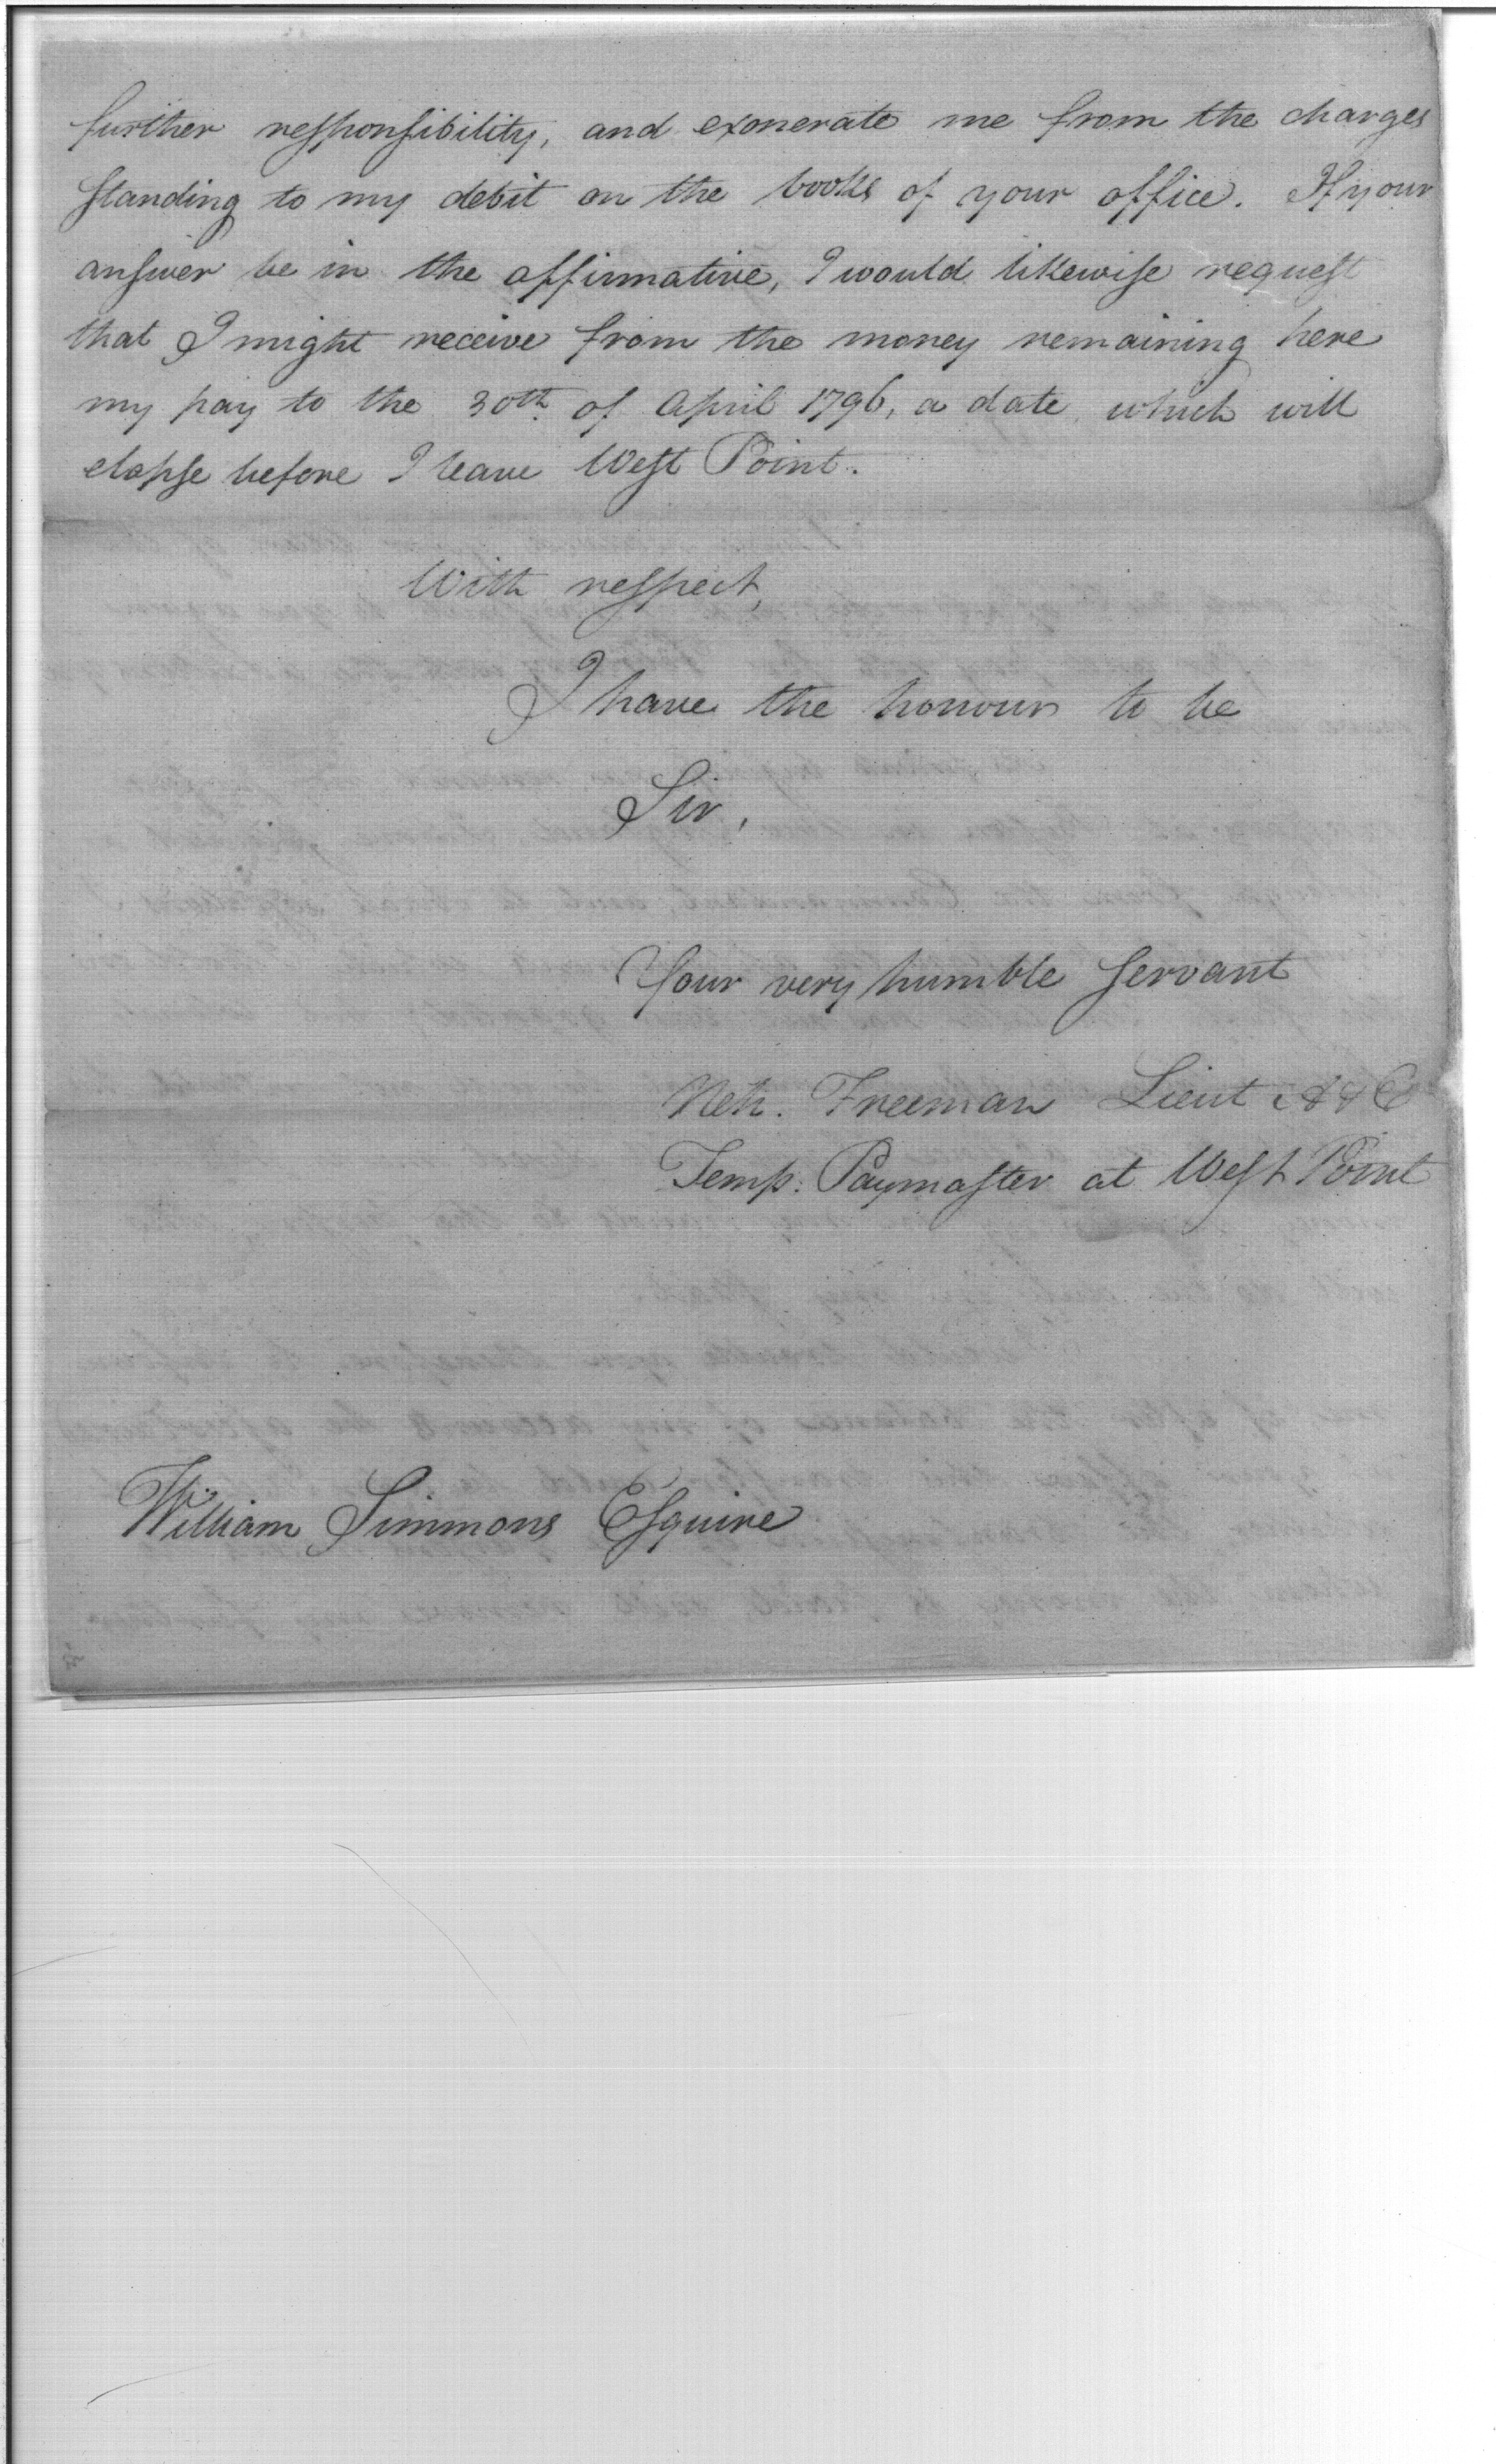 further responsibility, and exonerate me from the charges
standing to my debit on the books of your office. If your
answer be in the affirmative, I would likewise request
that I might receive from the money remaining here
my pay to the 30th of April 1796, a date which will
elapse before I leave West Point.
With respect,
I have the honour to be
Sir,
Your very humble servant
Neh. Freeman Lieut A & E
Temp: Paymaster at West Point
William Simmons Esquire